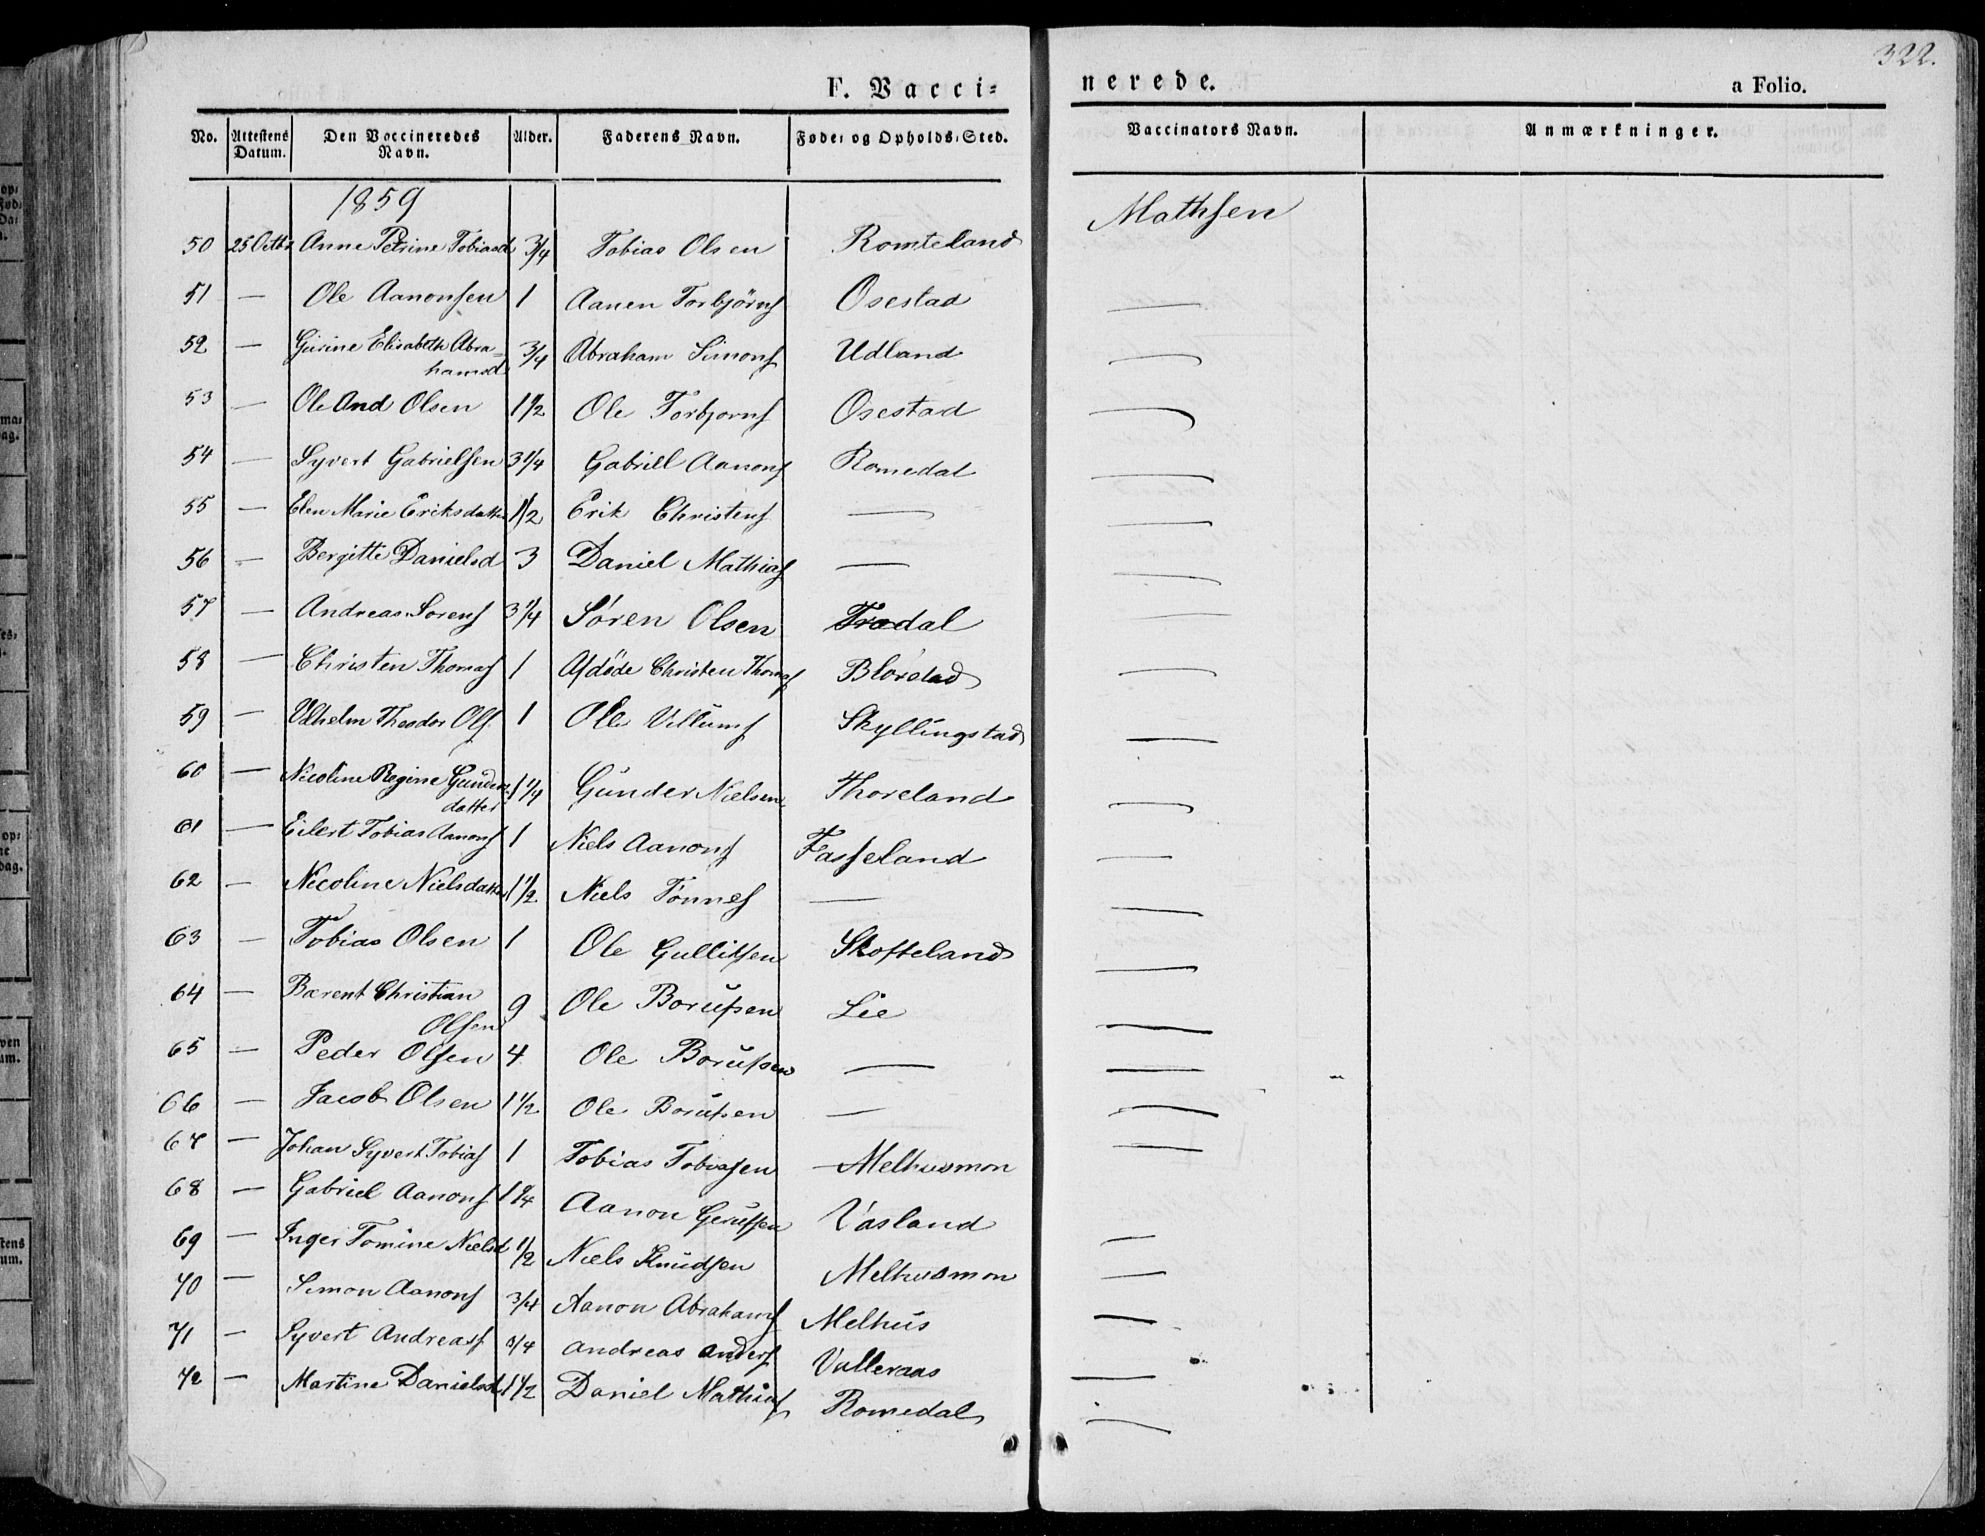 322.
F. Vacci-
nerede.
a Folio.
No. Attestens Datum. Den Vaccineredes Navn. Alder. Faderens Navn. Føde- og Opholds-Sted. Vaccinators Navn. Anmærkninger.
1859
50 25 Octbr Anne Petrine Tobiasd 3/4 Tobias Olsen Romteland Mathsen
51 — Ole Aanonsen 1 Aanen Torbjörns Osestad —
52 — Gurine Elisabeth Abra-
hamsd 3/4 Abraham Simons Udland —
53 — Ole And Olsen 1 1/2 Ole Torbjorns Osestad —
54 — Syvert Gabrielsen 3 1/4 Gabriel Aanons Romedal —
55 — Elen Marie Eriksdatter 1 1/2 Erik Christens — —
56 — Bergitte Danielsd 3 Daniel Mathias — —
57 — Andreas Sorens 3 1/4 Søren Olsen Trædal —
58 — Christen Thomas 1 Afdöde Christen Thomas —
59 — Vilhelm Theodor Ols 1 Ole Villums Skyllingstad —
60 — Nicoline Regine Gunder-
datter 1 1/4 Gunder Nielsen Thoreland —
61 — Eilert Tobias Aanons 1 Niels Aanons Fasseland —
62 — Nicoline Nielsdatter 1 1/2 Niels Tönnes — —
63 — Tobias Olsen 1 Ole Gullitsen Skofteland —
64 — Bærent Christian
Olsen 9 Ole Borufsen Lie —
65 — Peder Olsen 4 Ole Borufsen — —
66 — Jacob Olsen 1 1/2 Ole Borufsen — —
67 — Johan Syvert Tobias 1 Tobias Tobiasen Melhusmon —
68 — Gabriel Aanons 1 1/4 Aanon Gerufsen Vasland
69 — Inger Tomine Nielsd 1/2 Niels Knudsen Melhusmon —
70 — Simon Aanons 3/4 Aanon Abrahams Melhus —
71 — Syvert Andreass 3/4 Andreas Anders Valleraas —
72 — Martine Danielsd 1 1/2 Daniel Mathias Romedal —